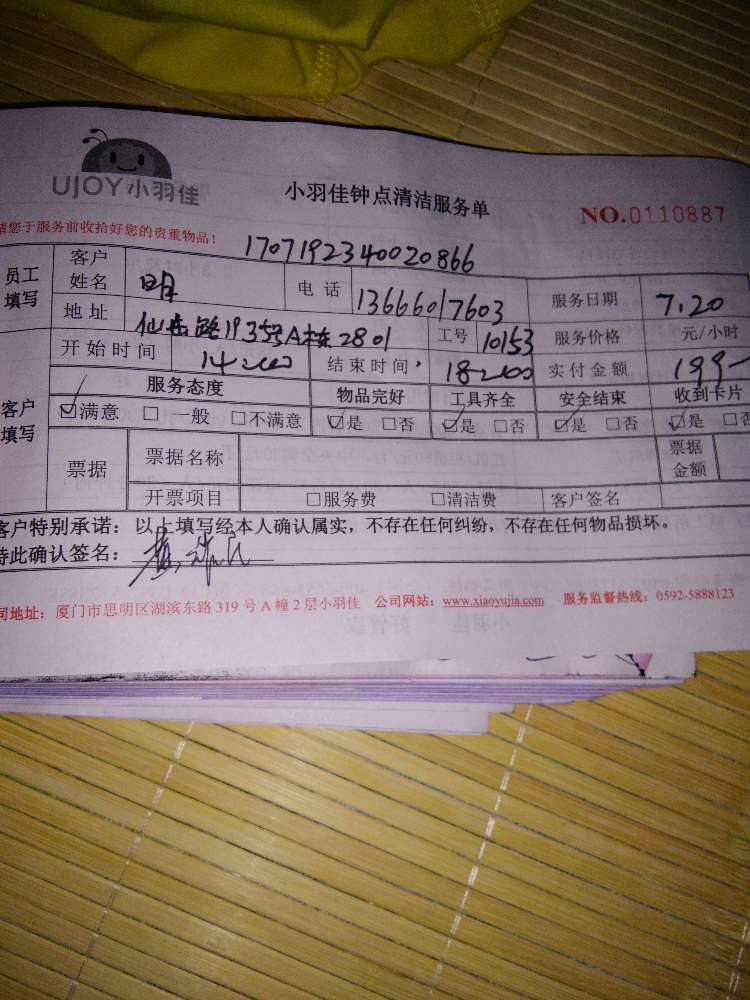 UJOY小羽佳
小羽佳钟点清洁服务单
NO.0110887
请您于服务前收拾好您的贵重物品!
1707192340020866
员工填写 客户姓名 明 电话 13666017603 服务日期 7.20
地址 仙岳路1935号A栋2801 工号 10153 服务价格 元/小时
开始时间 14:00 结束时间 18:00 实付金额 199
客户填写 服务态度 物品完好 工具齐全 安全结束 收到卡片
☑满意 □一般 □不满意 ☑是 □否 ☑是 □否 ☑是 □否 ☑是 □否
票据 票据名称 票据金额
开票项目 □服务费 □清洁费 客户签名
客户特别承诺：以上填写经本人确认属实，不存在任何纠纷，不存在任何物品损坏。
特此确认签名：
司地址：厦门市思明区湖滨东路 319 号 A 幢 2 层小羽佳 公司网站：www.xiaoyujia.com 服务监督热线：0592-5888123